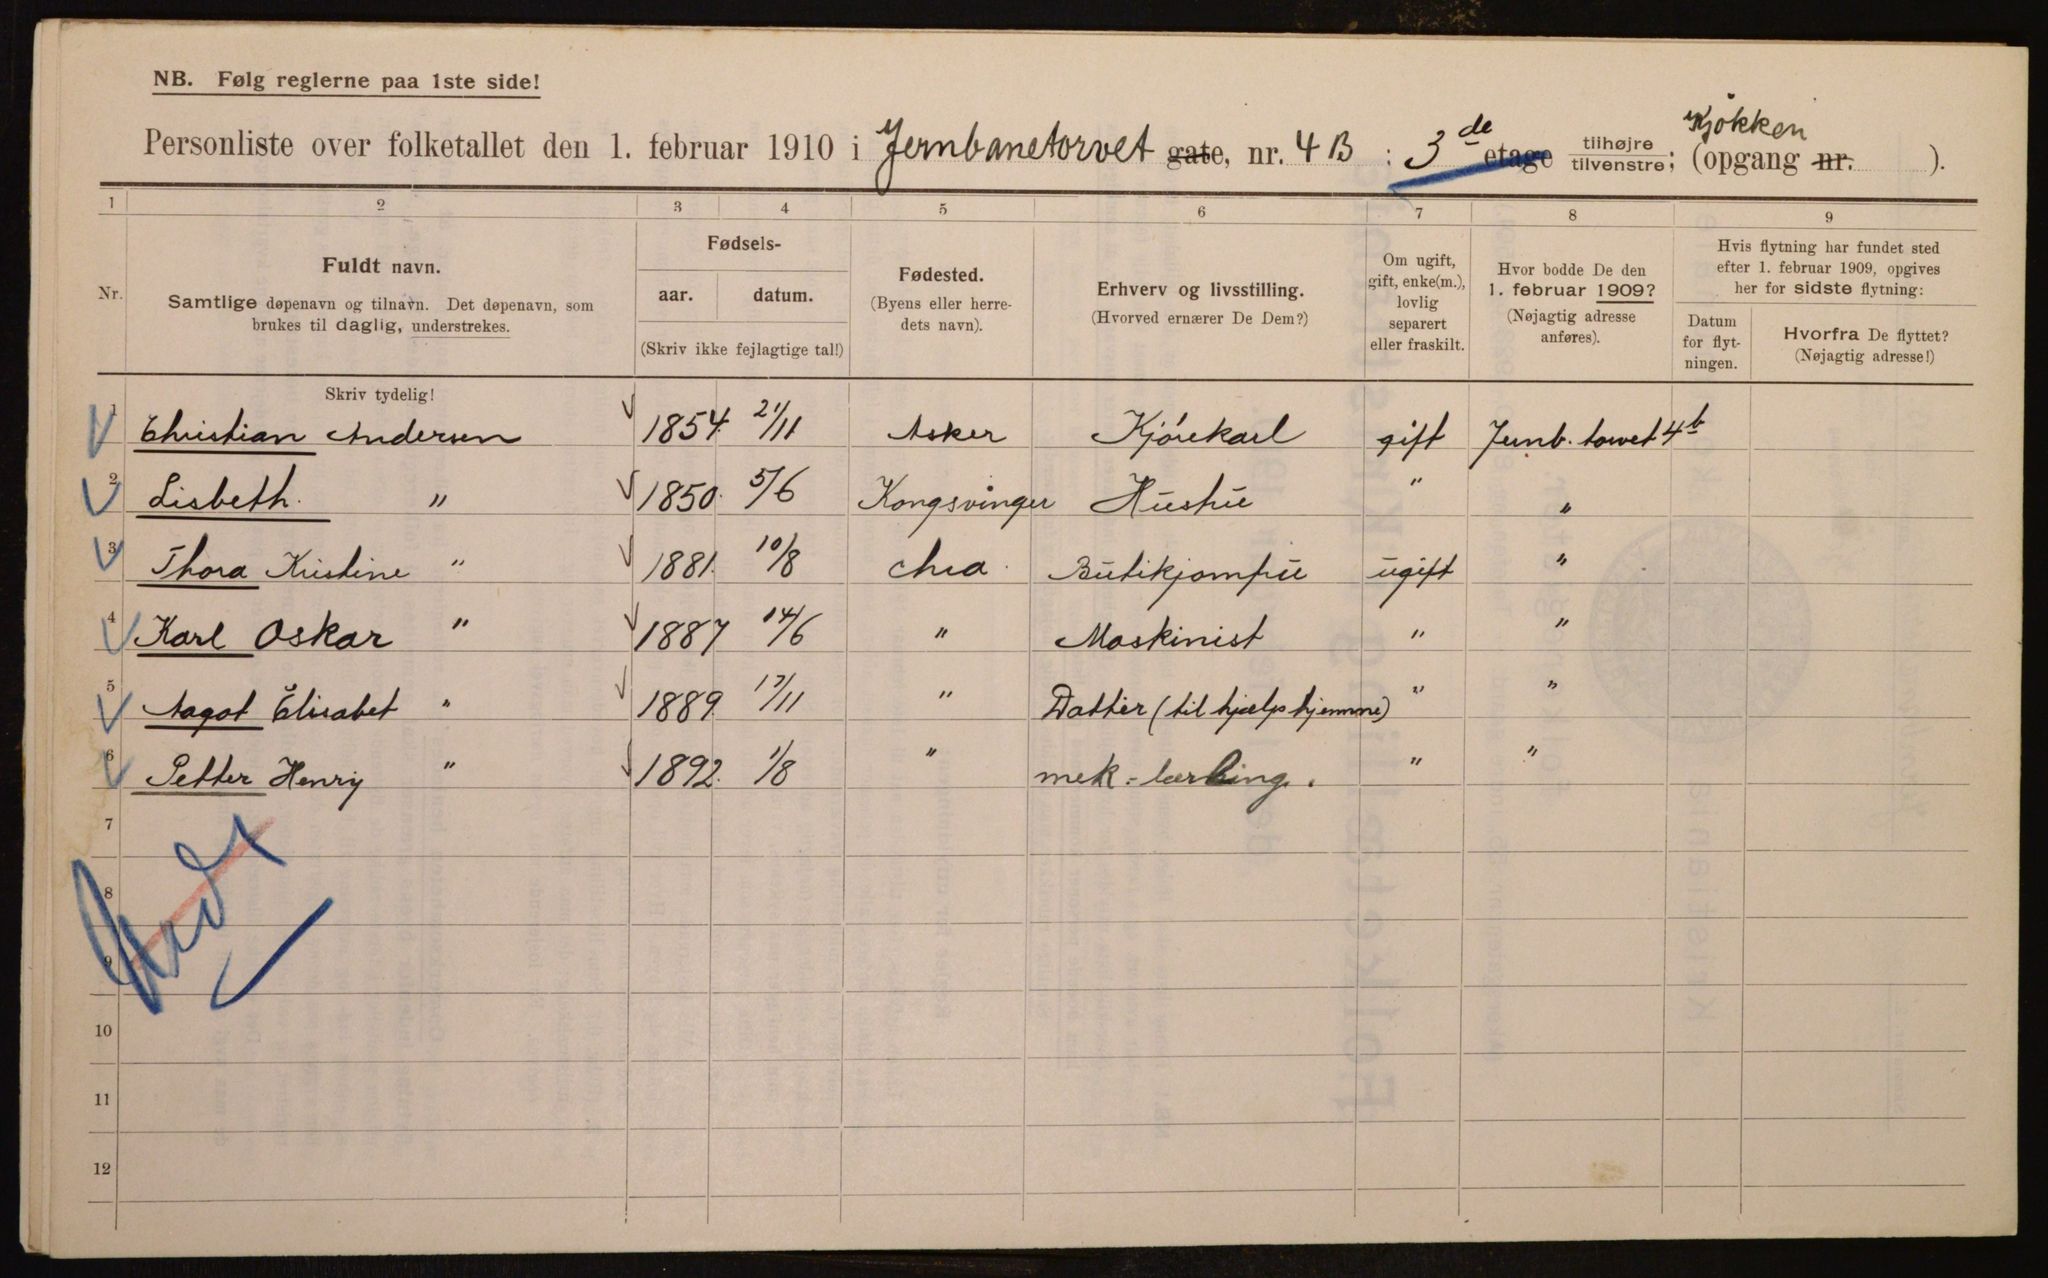 NB. Følg reglerne paa 1ste side!
Personliste over folketallet den 1. februar 1910 i Jernbanetorvet gate, nr. 4 B : 3de etage tilhøjre tilvenstre; (opgang nr. ).
Kjökken
1 2 3 4 5 6 7 8 9
Nr.
Fuldt navn.
Samtlige døpenavn og tilnavn. Det døpenavn, som
brukes til daglig, understrekes.
Fødsels-
aar. datum.
(Skriv ikke fejlagtige tal!)
Fødested.
(Byens eller herre-
dets navn).
Erhverv og livsstilling.
(Hvorved ernærer De Dem?)
Om ugift,
gift, enke(m.),
lovlig
separert
eller fraskilt.
Hvor bodde De den
1. februar 1909?
(Nøjagtig adresse
anføres).
Hvis flytning har fundet sted
efter 1. februar 1909, opgives
her for sidste flytning:
Datum
for flyt-
ningen.
Hvorfra De flyttet?
(Nøjagtig adresse!)
Skriv tydelig!
1 Christian Andersen 1854 21/11 Asker Kjörekarl gift Jernb. torvet 4b
2 Lisbeth. " 1850. 5/6 Kongsvinger Hustru " "
3 Thora Kristine " 1881. 10/8 Chra. Butikjomfru ugift "
4 Karl Oskar " 1887 14/6 " Maskinist " "
5 Aagot Elisabet " 1889. 17/11 " Datter (til hjælp hjemme) " "
6 Petter Henry " 1892. 1/8 " mek.-lærling. " "
7
8
9
10
11
12